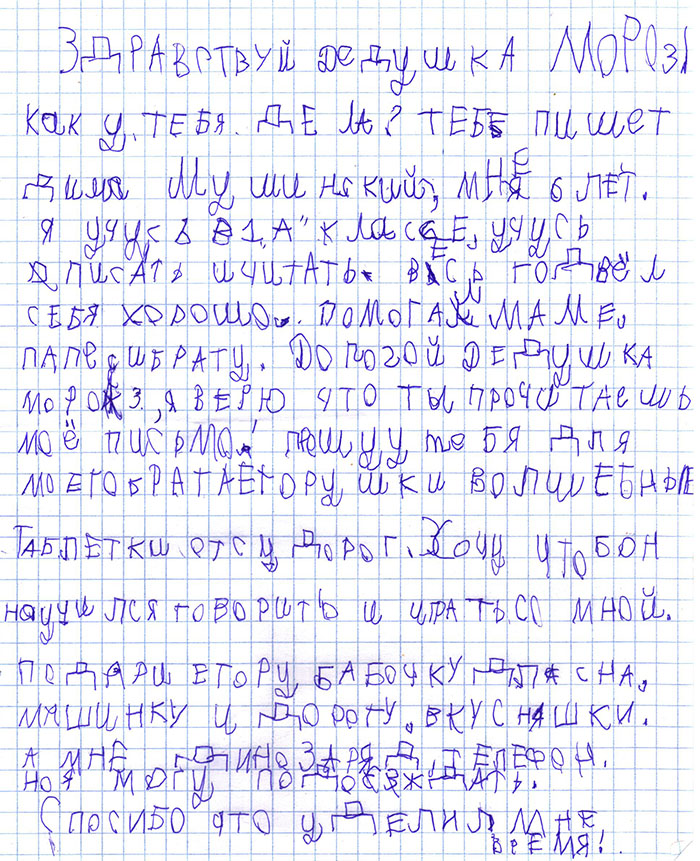 ЗДРАВСТВУЙ ДЕДУШКА МОРОЗ!
КАК У ТЕБЯ. ДЕЛА? ТЕБЕ ПИШЕТ
ДИМА МУШИНСКИЙ, МНЕ 6 ЛЕТ.
Я УЧУСЬ В 1"А" КЛАССЕ, УЧУСЬ
ПИСАТЬ И ЧИТАТЬ. ВЕСЬ ГОД ВЁЛ
СЕБЯ ХОРОШО. ПОМОГАЛ МАМЕ,
ПАПЕ, И БРАТУ. ДОРОГОЙ ДЕДУШКА
МОРОЗ, Я ВЕРЮ ЧТО ТЫ ПРОЧИТАЕШЬ
МОЁ ПИСЬМО! ПРОШУ У ТЕБЯ ДЛЯ
МОЕГО БРАТА ЕГОРУШКИ ВОЛШЕБНЫЕ
ТАБЛЕТКИ ОТ СУДОРОГ. ХОЧУ ЧТОБ ОН
НАУЧИЛСЯ ГОВОРИТЬ И ИГРАТЬ СО МНОЙ.
ПОДАРИ ЕГОРУ БАБОЧКУ ДЛЯ СНА,
МАШИНКУ И ДОРОГУ, ВКУСНЯШКИ.
А МНЕ ДИНОЗАРЯД, ТЕЛЕФОН.
НО Я МОГУ ПОДОЖДАТЬ.
СПОСИБО ЧТО УДЕЛИЛ МНЕ
ВРЕМЯ!